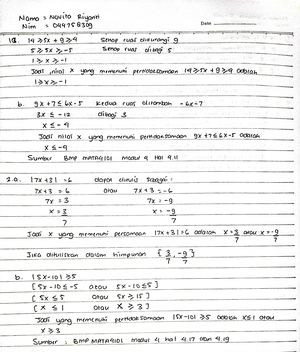 Nama : Novita Riyanti
Nim : 044758309
Date
1a. 14 ≥ 5x + 9 ≥ 4 Setiap ruas dikurangi 9
5 ≥ 5x ≥ -5 Setiap ruas dibagi 5
1 ≥ x ≥ -1
Jadi nilai x yang memenuhi pertidaksamaan 14 ≥ 5x + 9 ≥ 4 adalah
1 ≥ x ≥ -1
b. 9x + 7 ≤ 6x - 5 kedua ruas ditambah -6x-7
3x ≤ -12 dibagi 3
x ≤ -4
Jadi nilai x yang memenuhi pertidaksamaan 9x + 7 ≤ 6x - 5 adalah
x ≤ -4
Sumber BMP MATA4101 Modul 4 hal 4.11
2.a. |7x + 3| = 6 dapat ditulis sebagai :
7x + 3 = 6 atau 7x + 3 = -6
7x = 3 7x = -9
x = 3/7 x = -9/7
Jadi x yang memenuhi persamaan |7x + 3| = 6 adalah x = 3/7 atau x = -9/7
Jika dituliskan dalam himpunan { 3/7, -9/7 }
b. |5x - 10| ≥ 5
[ 5x - 10 ≤ -5 atau 5x - 10 ≥ 5 ]
[ 5x ≤ 5 atau 5x ≥ 15 ]
[ x ≤ 1 atau x ≥ 3 ]
Jadi yang memenuhi pertidaksamaan |5x - 10| ≥ 5 adalah x ≤ 1 atau
x ≥ 3
Sumber : BMP MATA4101 Modul 4 hal 4.17 dan 4.19